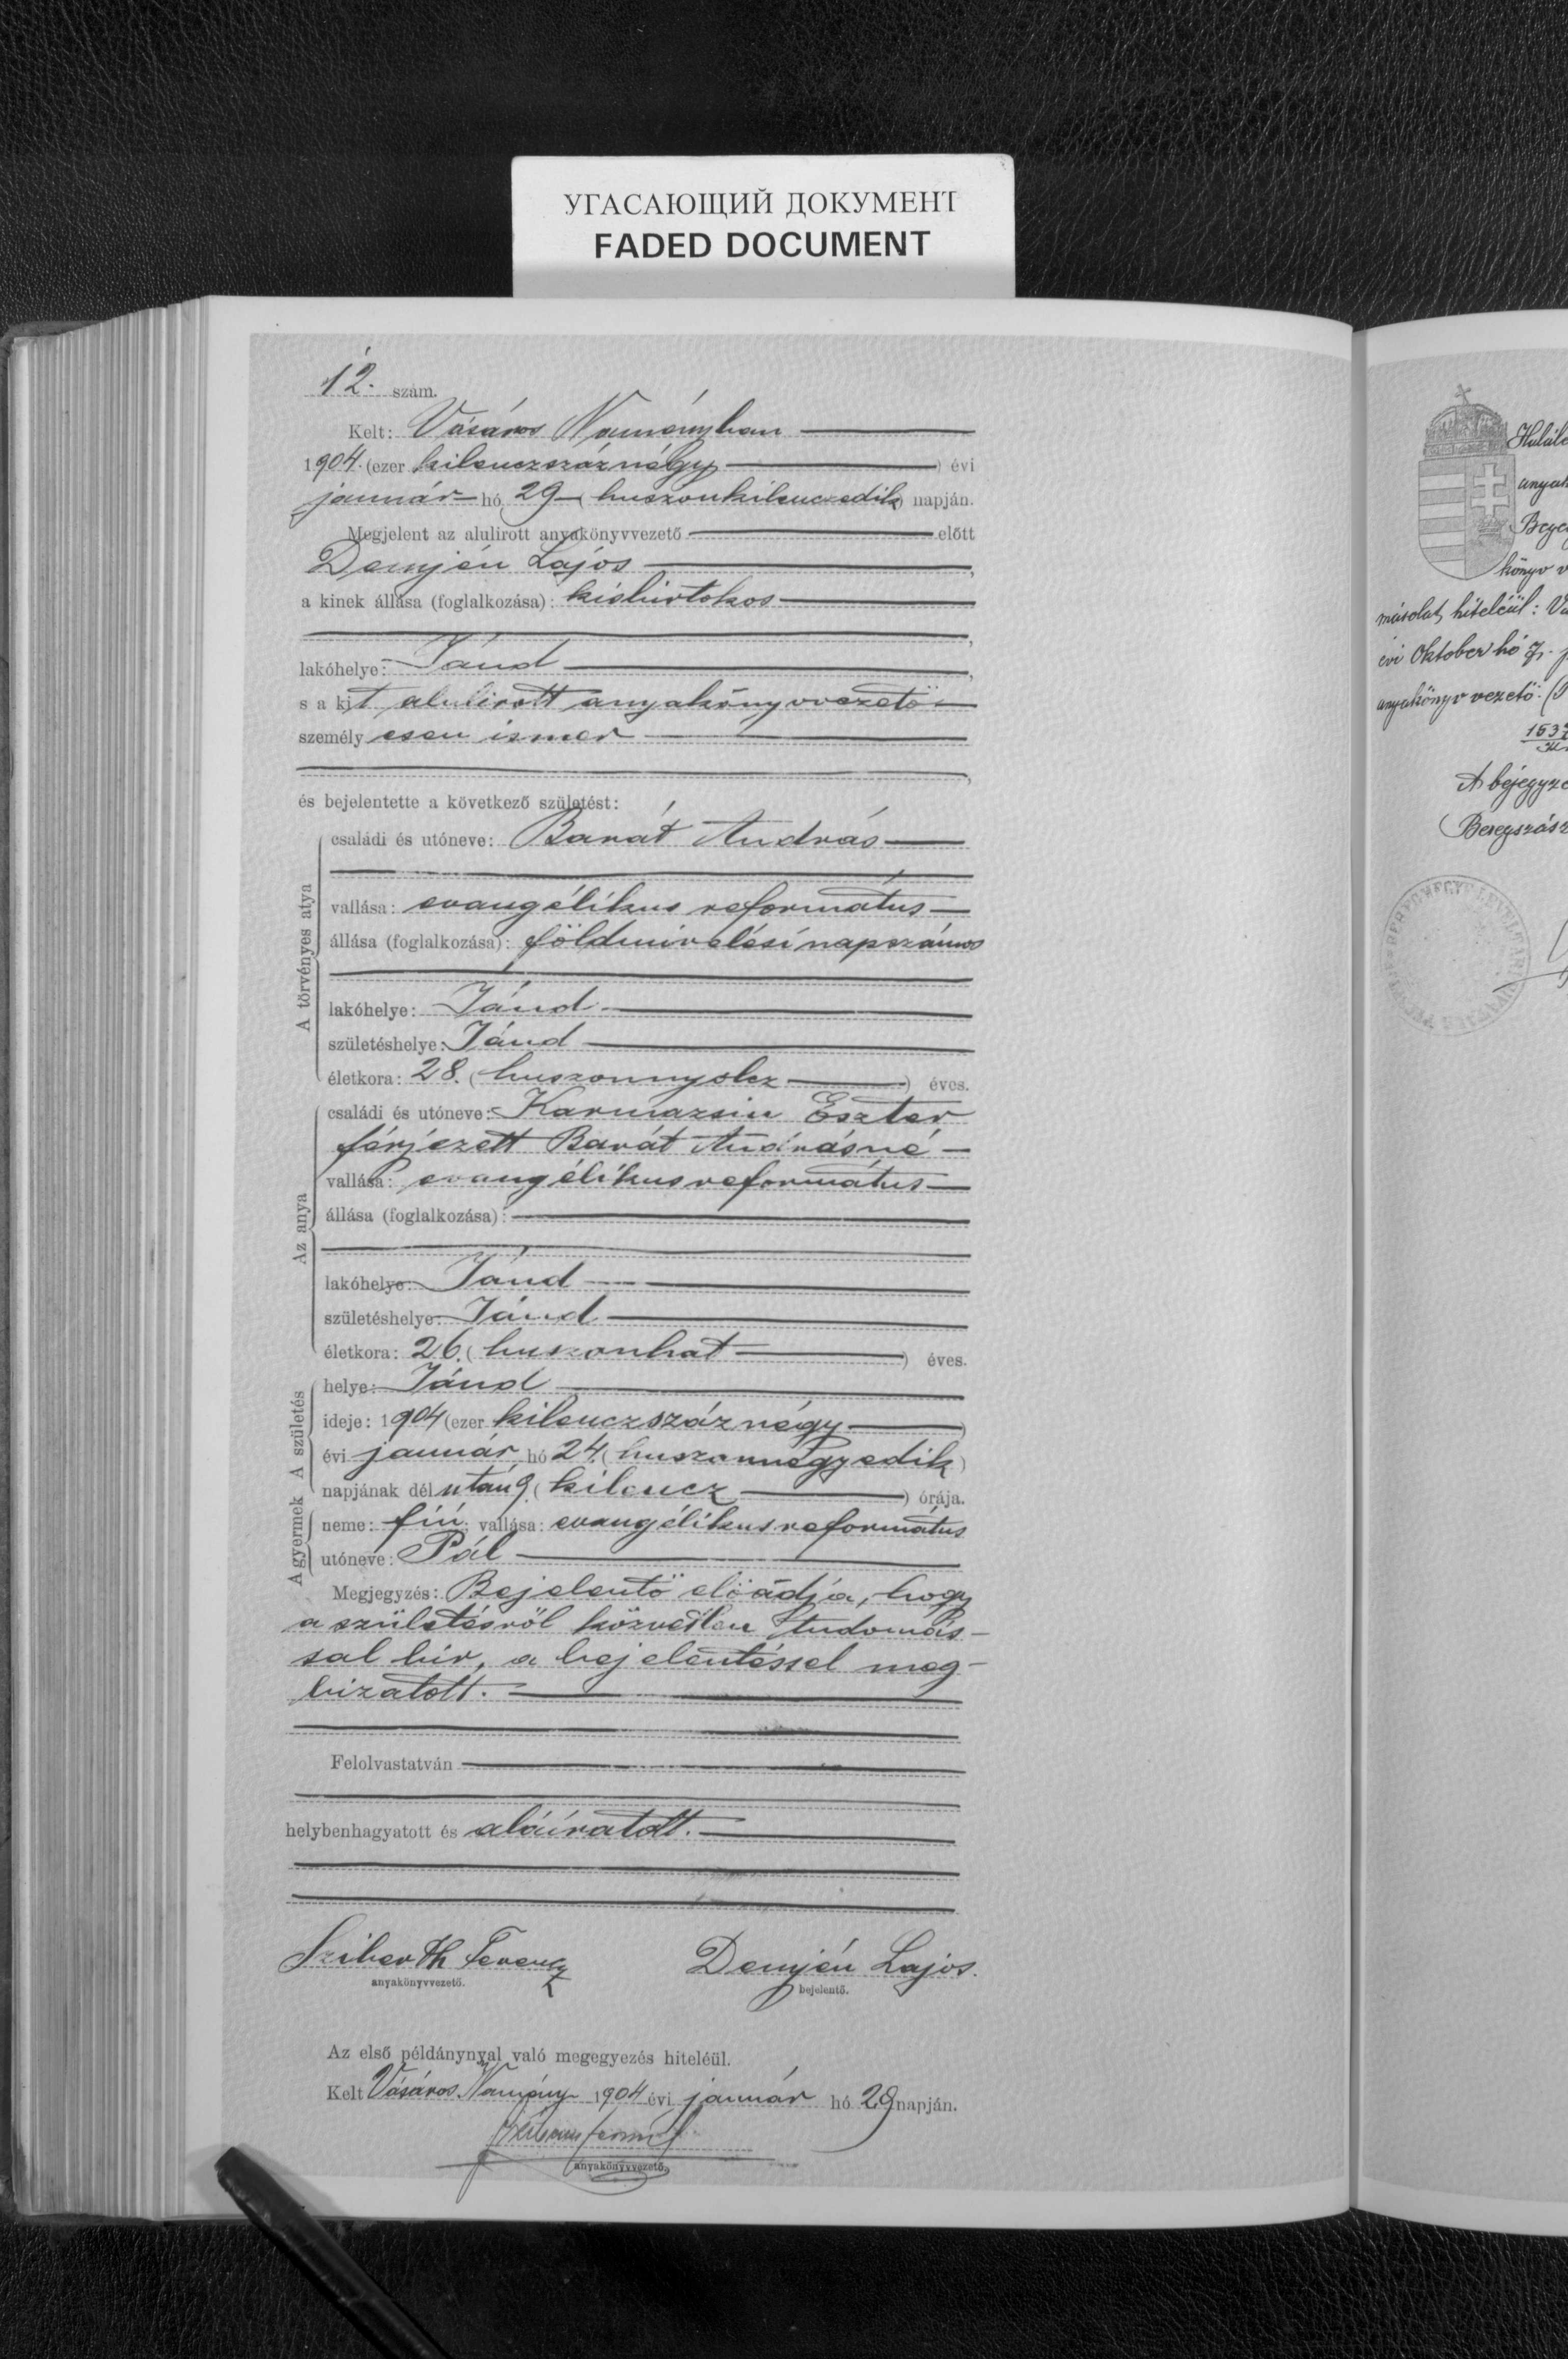 УГАСАЮЩИЙ ДОКУМЕНТ
FADED DOCUMENT
12. szám.
Kelt: Vásáros Naményban
1904. (ezer kilenczszáznégy) évi
január hó 29 (huszonkilenczedik) napján.
Megjelent az alulirott anyakönyvvezető előtt
Demjén Lajos,
a kinek állása (foglalkozása): kisbirtokos
,
lakóhelye: Jánd,
s a kit alulirott anyakönyvvezető
személyesen ismer
,
és bejelentette a következő születést:
A törvényes atya
családi és utóneve: Barát András
vallása: evangélikus református
állása (foglalkozása): földmivelési napszámos
lakóhelye: Jánd
születéshelye: Jánd
életkora: 28. (huszonnyolcz) éves.
Az anya
családi és utóneve: Karmazsin Eszter
férjezett Barát Andrásné
vallása: evangélikus református
állása (foglalkozása):
lakóhelye: Jánd
születéshelye: Jánd
életkora: 26. (huszonhat) éves.
A születés
helye: Jánd
ideje: 1904 (ezer kilenczszáznégy)
évi január hó 24. (huszonnegyedik)
napjának délután 9. (kilencz) órája.
A gyermek
neme: fiú; vallása: evangélikus református
utóneve: Pál
Megjegyzés: Bejelentő előádja, hogy
a születésről közvetlen tudomás-
sal bir, a bejelentéssel meg-
bizatott.
Felolvastatván
helybenhagyatott és aláiratott.
Sziberth Ferencz
anyakönyvvezető.
Demjén Lajos.
bejelentő.
Az első példánynyal való megegyezés hiteléül.
Kelt Vásáros Namény 1904 évi január hó 29 napján.
anyakönyvvezető.
anyak
könyv v
másolat hiteléül: Vá
évi Oktober hó 7.
anyakönyv vezető: (
A bejegyzé
Beregszász